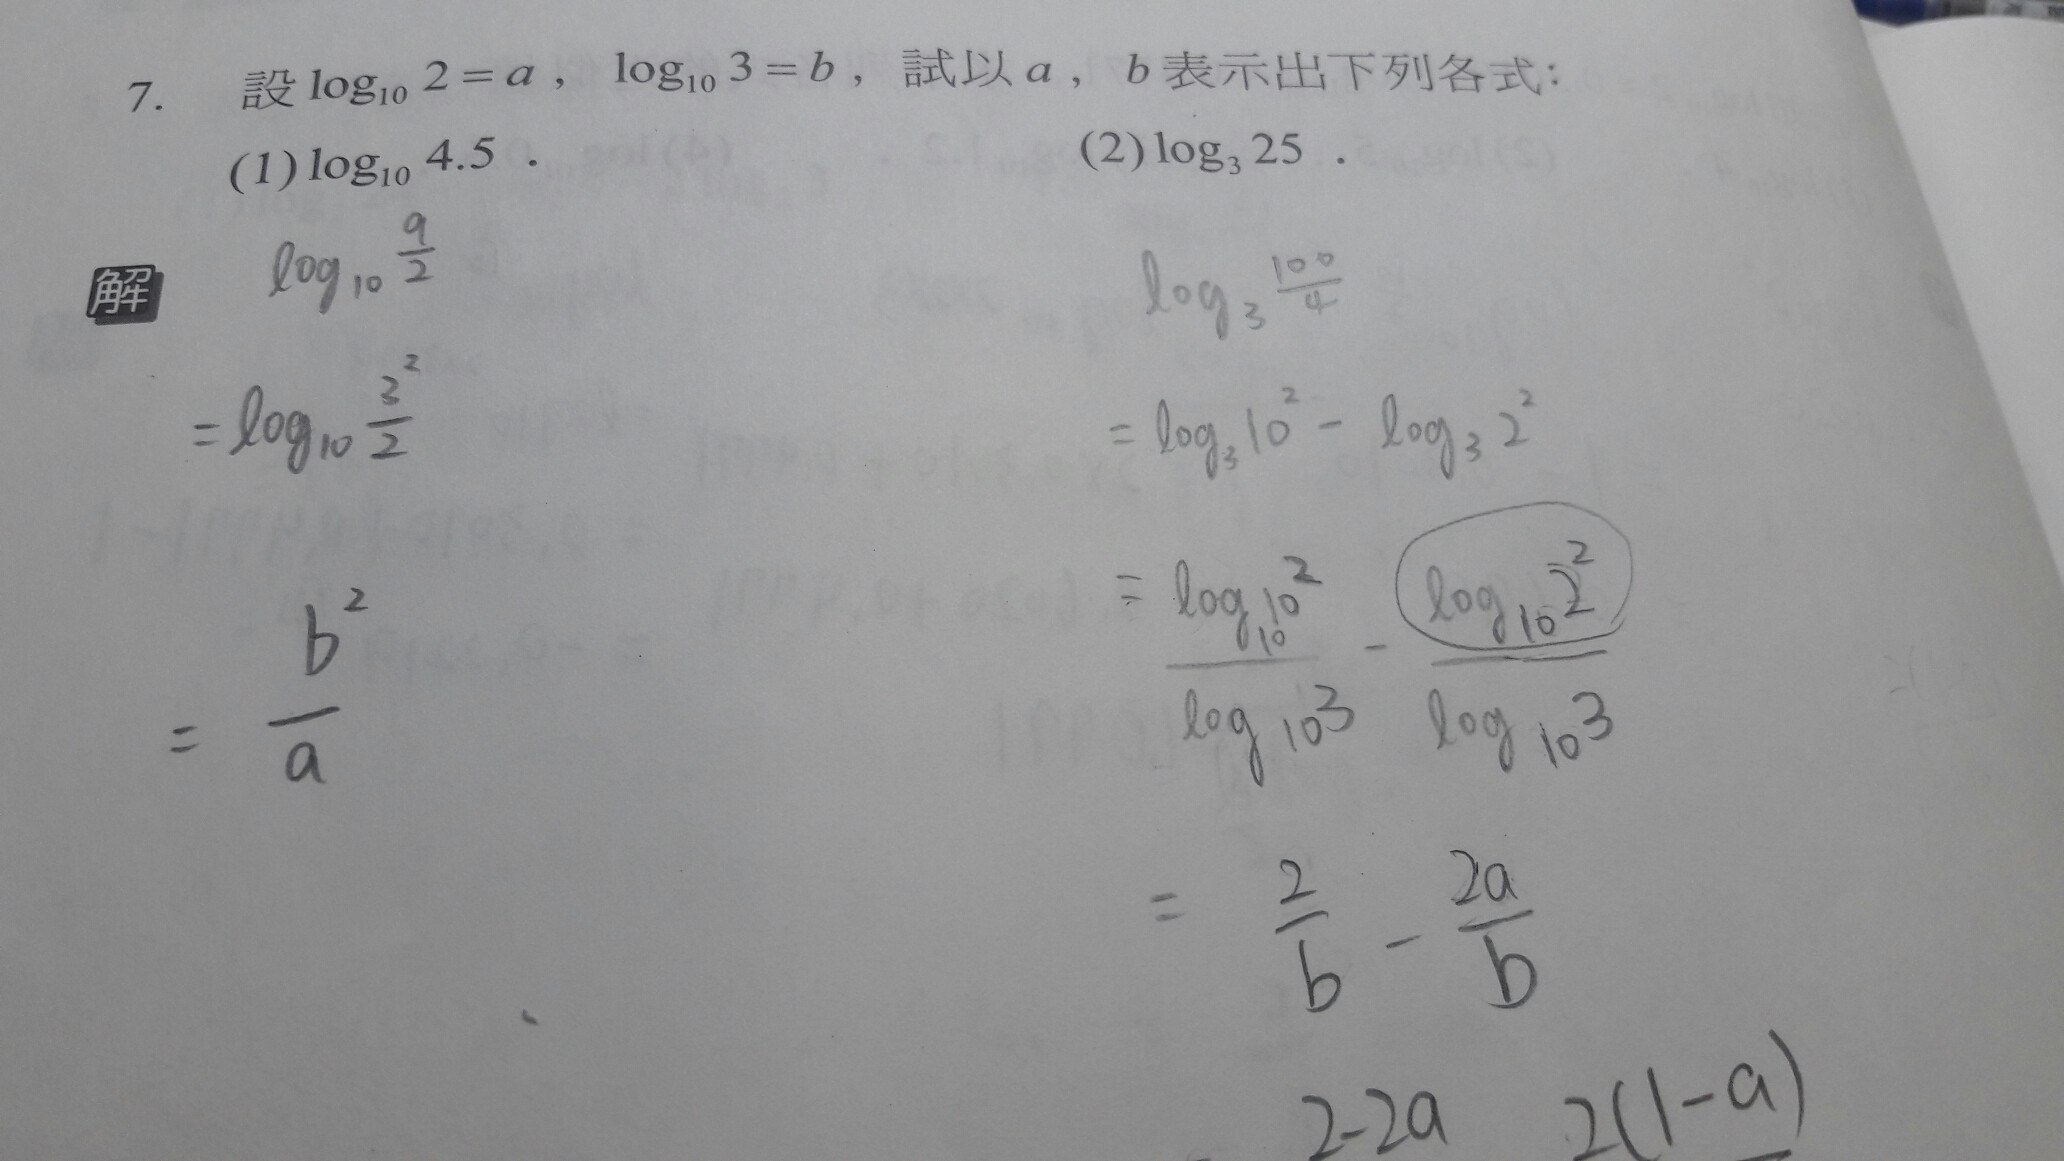 7. 設 log₁₀ 2 = a , log₁₀ 3 = b , 試以 a , b 表示出下列各式：
(1) log₁₀ 4.5 .
(2) log₃ 25 .
解
log₁₀ 9/2
= log₁₀ 3²/2
= b²/a
log₃ 100/4
= log₃ 10² - log₃ 2²
= log₁₀ 10² / log₁₀ 3 - log₁₀ 2² / log₁₀ 3
= 2/b - 2a/b
2-2a 2(1-a)